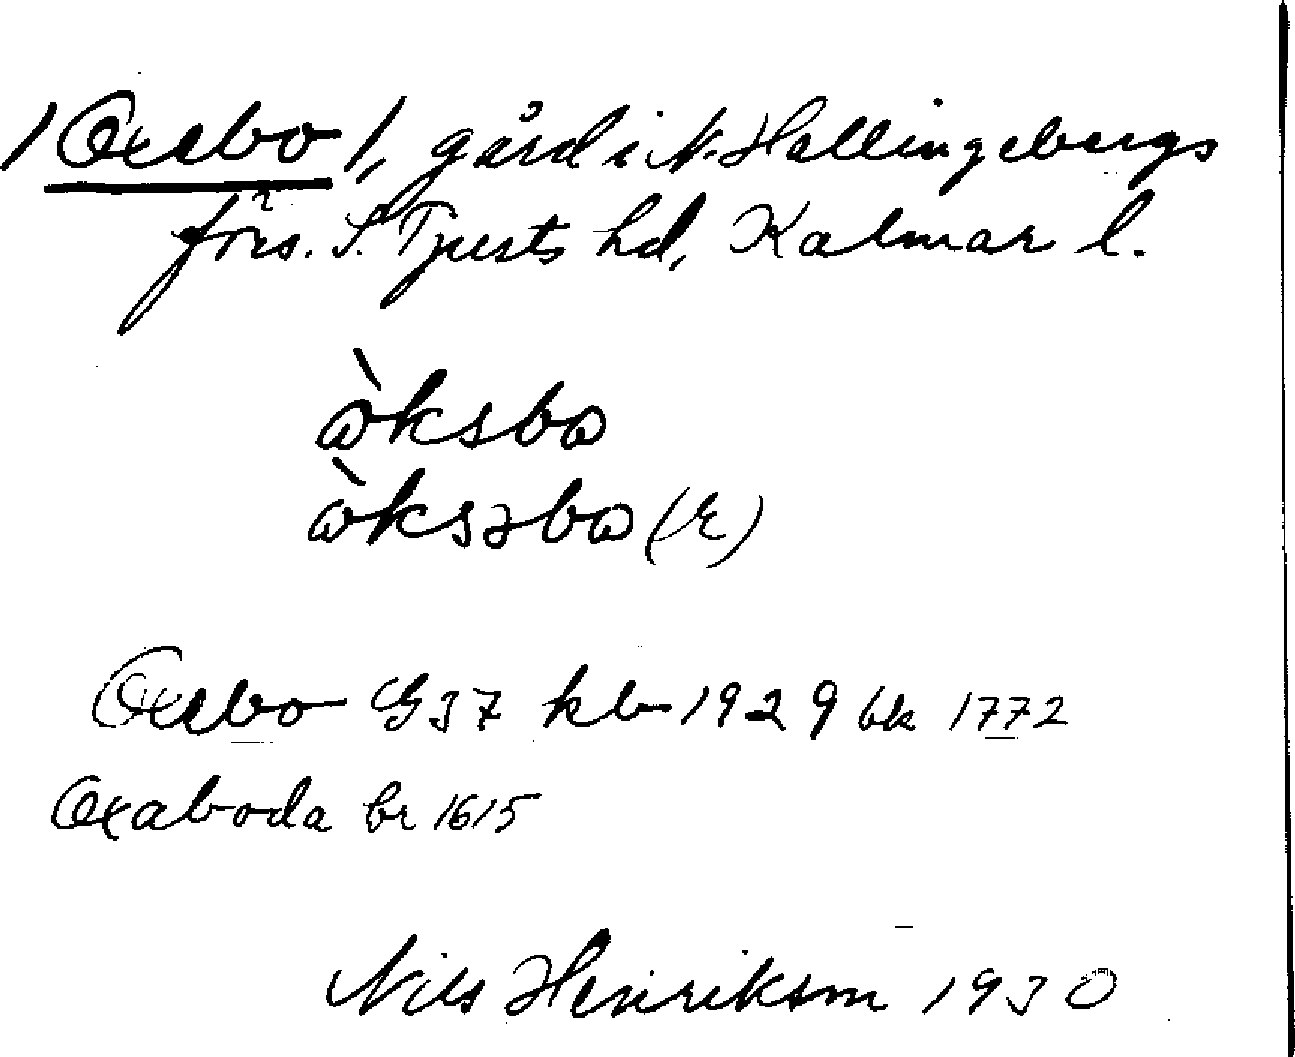 /Oxebo/, gård i N. Hallingebergs
förs. S. Tjusts hd, Kalmar l.
òksbo
òksəbo (E)
Oxebo G37 kb 1929 bk 1772
Oxaboda br 1615
Nils Henrikson 1930